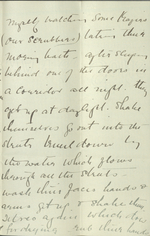 myself watching some Negroes
(our scrubbers) late this
morning after sleeping
behind one of the doors in
a corridor all night. they
get up at daylight. Shake
themselves go out into the
streets kneel down by
the water which flows
through all the streets
wash their faces hands &
arms get up & shake them
selves again which does
for drying rub their hands